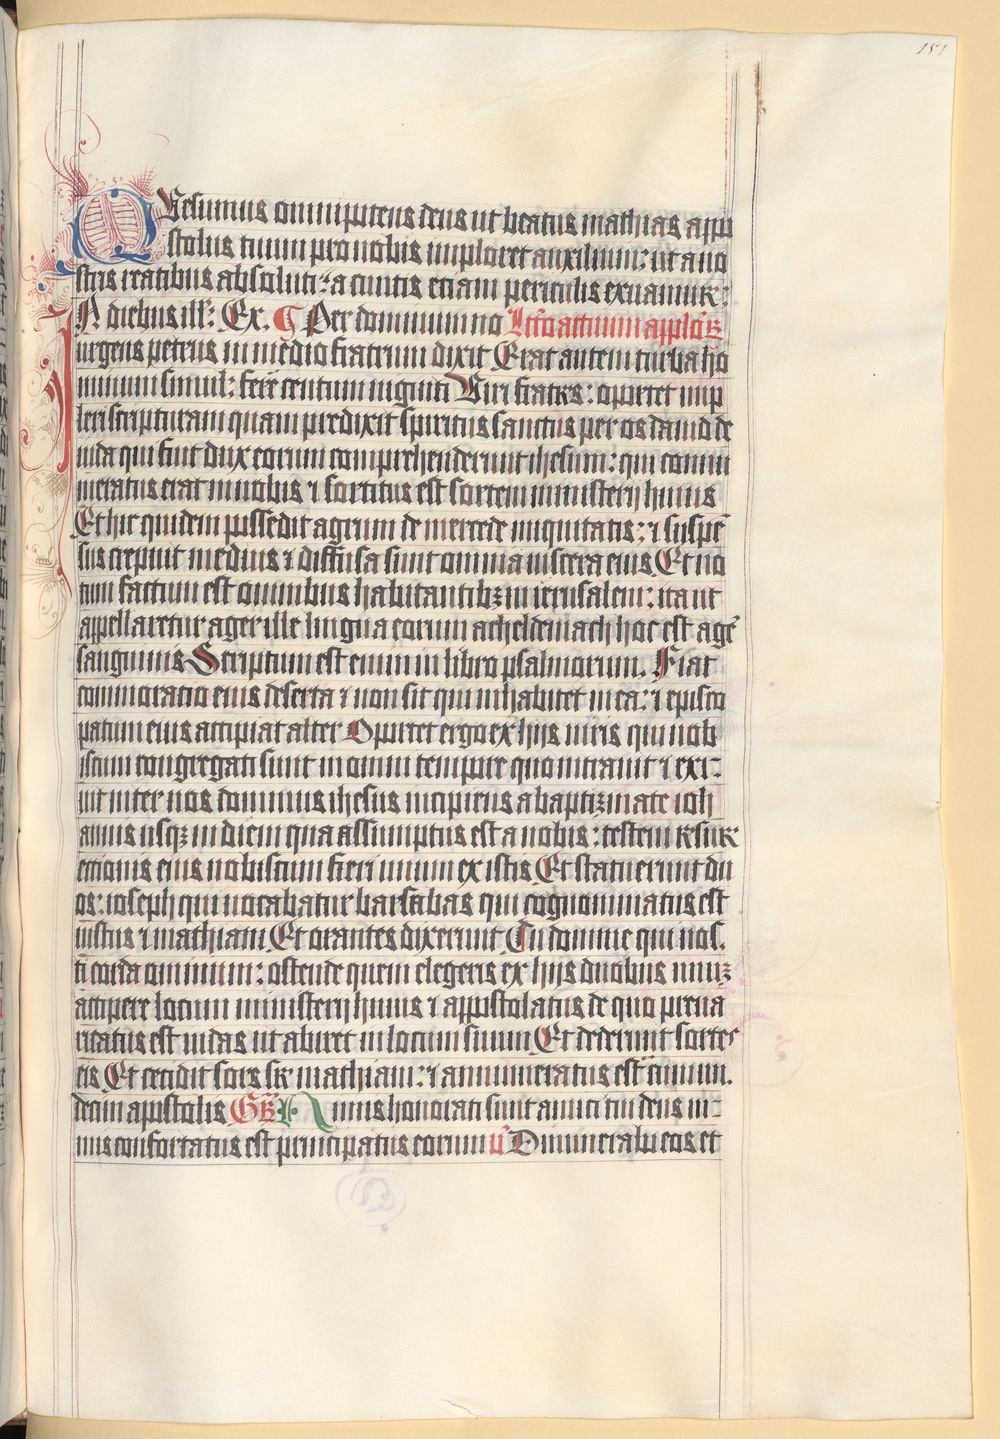 151
QVesumus omnipotens deus ut beatus mathias appo
stolus tuum pro nobis imploret auxilium: ut a no
stris reatibus absoluti: a cunctis etiam periculis exuamur:
In diebus ill': Ex. Per dominum no Lc̃o actuum apploꝝ
urgens petrus in medio fratrum dixit Erat autem turba ho
minum simul: fere centum uiginti Viri fratres: oportet imp
leri scripturam quam predixit spiritus sanctus per os dauid de
iuda qui fuit dux eorum comprehenderunt ihesum: qui connu
meratus erat in nobis ⁊ sortitus est sortem ministerij huius
Et hic quidem possedit agrum de mercede iniquitatis: ⁊ suspē
sus crepuit medius ⁊ diffusa sunt omnia uiscera eius Et no
tum factum est omnibus habitantibꝫ in ierusalem: ita ut
appellaretur ager ille lingua eorum acheldemach hoc est agē
sanguinis Scriptum est enim in libro psalmorum. Fiat
commoratio eius deserta ⁊ non sit qui inhabitet in ea: ⁊ episco
patum eius accipiat alter Oportet ergo ex hijs uiris qui nob
iscum congregati sunt in omni tempore quo intrauit ⁊ exi:
uit inter nos dominus ihesus incipiens a baptizmate ioh
annis usqꝫ in diem qua assumptus est a nobis: testem resur
ectionis eius nobiscum fieri unum ex istis Et statuerunt du
os: ioseph qui uocabatur barsabas qui cognominatus est
iustus ⁊ mathiam Et orantes dixerunt Tu domine qui nos.
ti corda omnium: ostende quem elegeris ex hijs duobus unuꝫ
accipere locum ministerij huius ⁊ appostolatus de quo preua
ricatus est iudas ut abiret in locum suum Et dederunt sortes
eis Et cecidit sors sr̄ mathiam: ⁊ annumeratus est cum un.
decim apostolis Gr̄ Nimis honorati sunt amici tui deus ni:
mis confortatus est principatus eorum v̄ Dinumerabo eos et